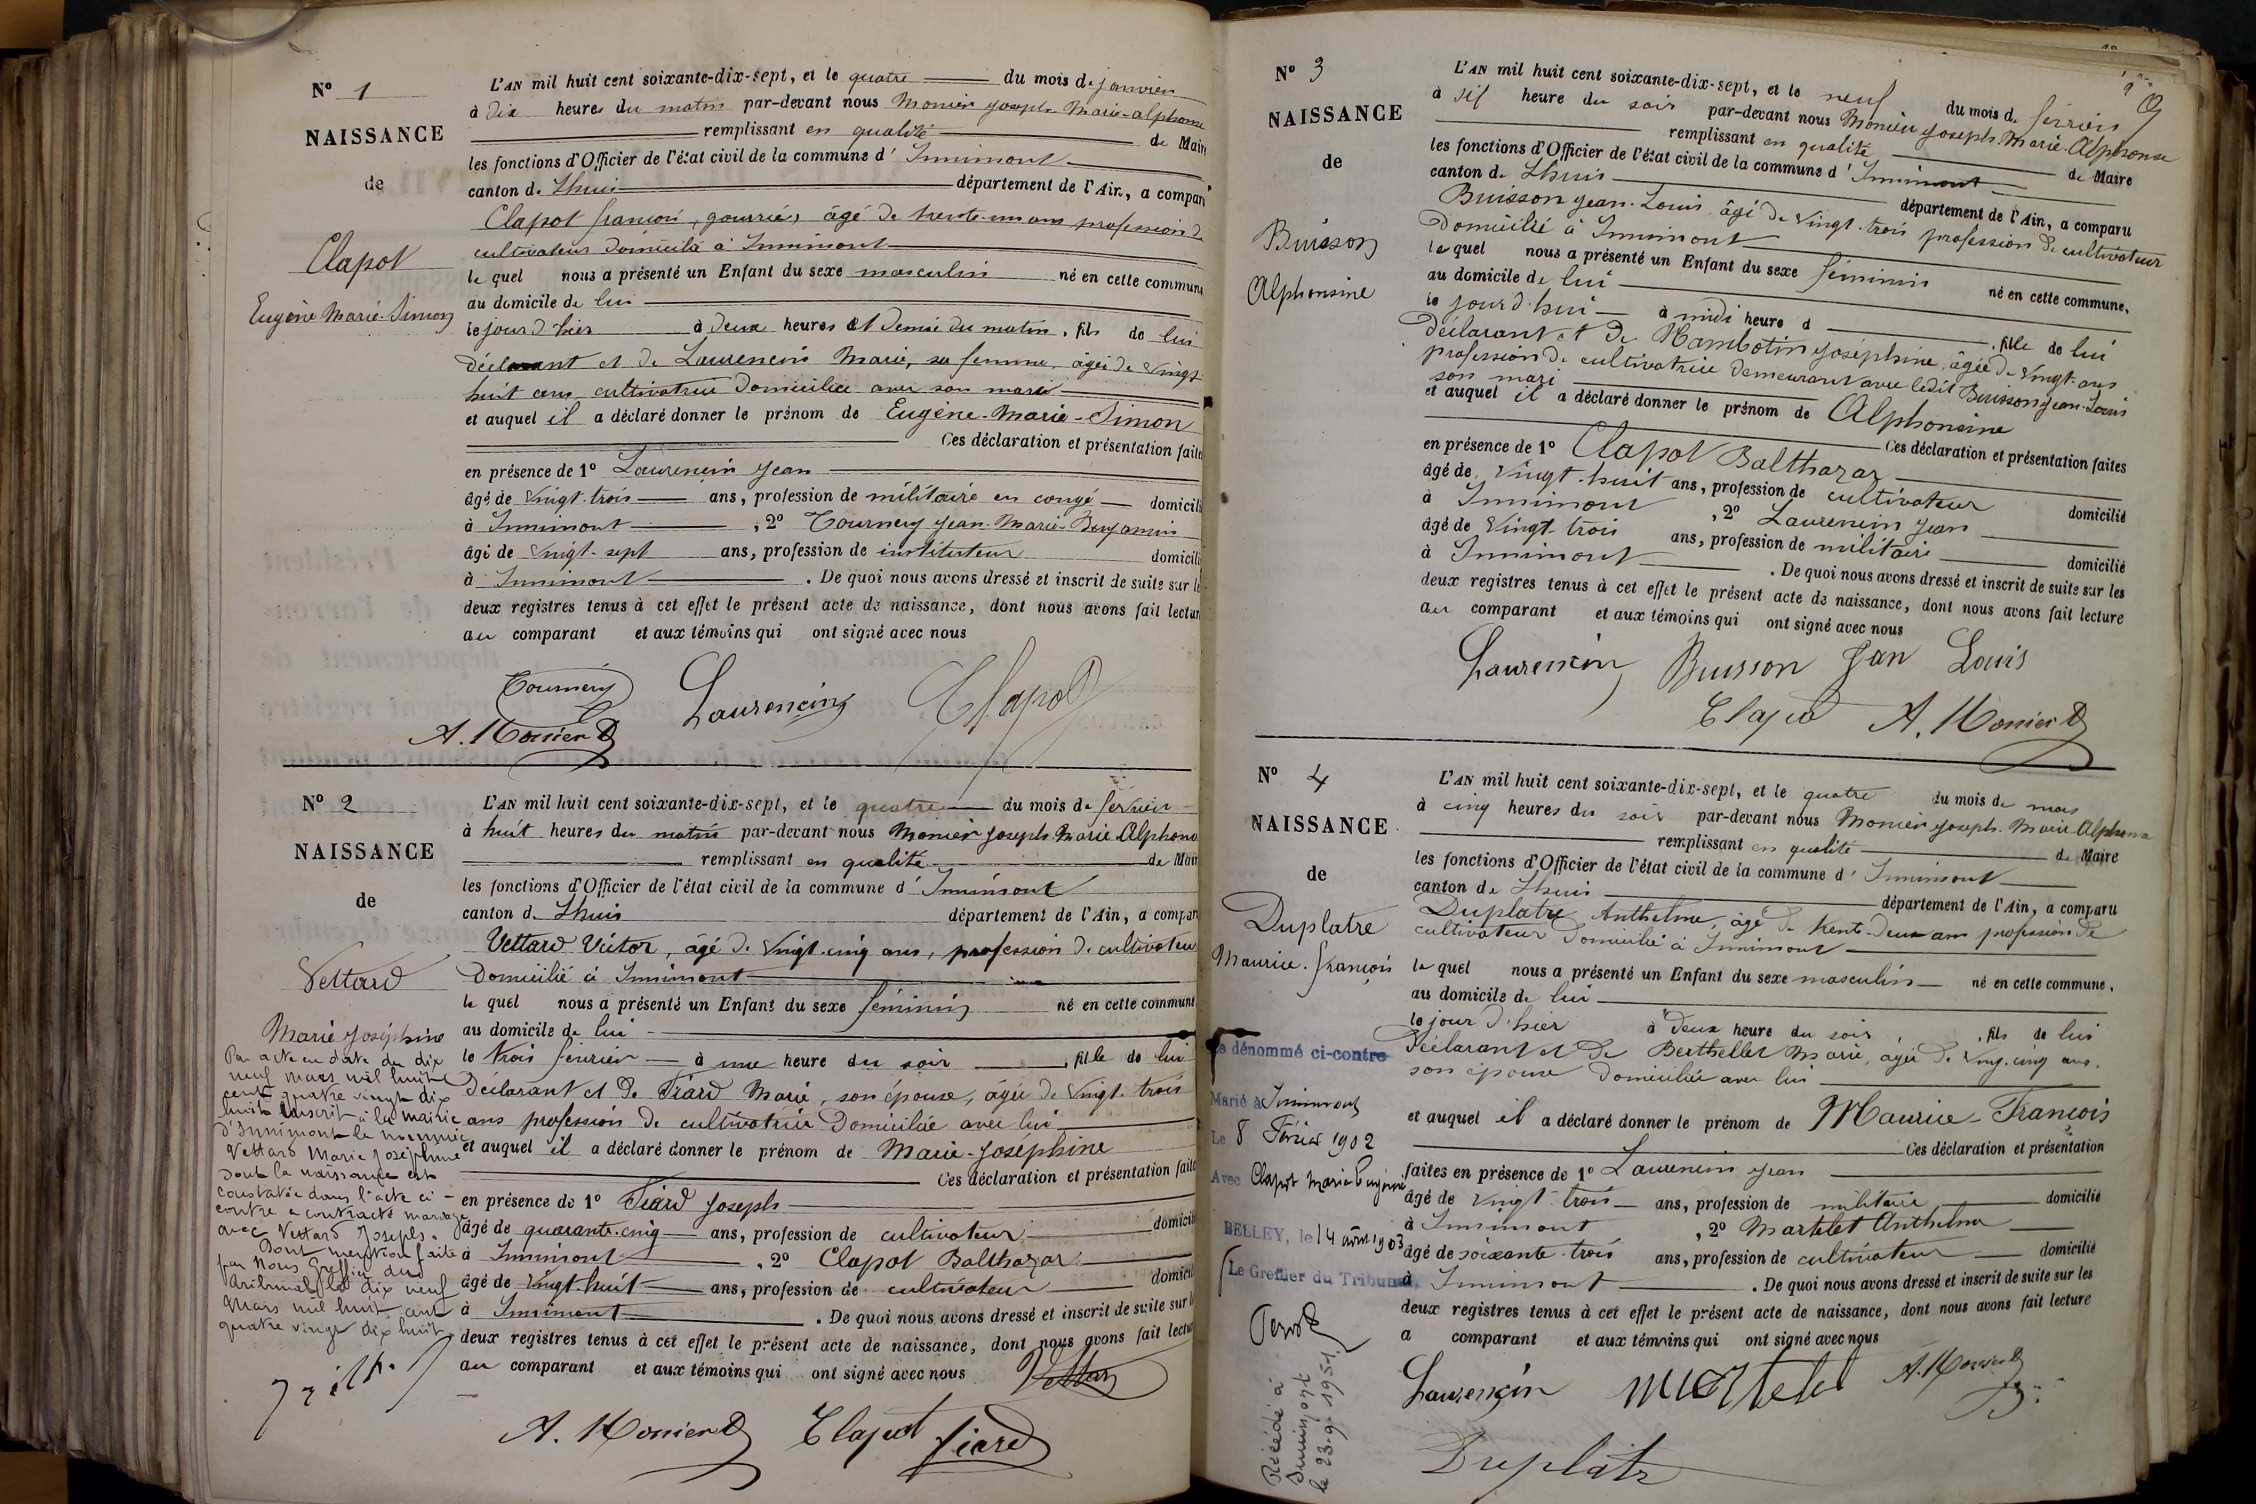 N° 1
NAISSANCE
de
Clapot
Eugène Marie-Simon
L'AN mil huit cent soixante-dix-sept, et le quatre du mois de janvier
à dix heures du matin par-devant nous Monier Joseph Marie-alphonse
remplissant en qualité de Mair
les fonctions d'Officier de l'état civil de la commune d'Innimont
canton de Lhuis département de l'Ain, a compar
Clapot françois, âgé de trente-un ans profession de
cultivateur domicilié à Innimont
le quel nous a présenté un Enfant du sexe masculin né en cette commune
au domicile de lui
le jour d'hier à deux heures et demie du matin, fils de lui
déclarant et de Laurencin Marie, sa femme, âgée de vingt
huit ans cultivatrice domiciliée avec son mari
et auquel il a déclaré donner le prénom de Eugène-Marie-Simon
Ces déclaration et présentation faite
en présence de 1° Laurencin Jean
âgé de vingt-trois ans, profession de militaire en congé domicili
à Innimont, 2° Tournery Jean-Marie-Benjamin
âgé de vingt-sept ans, profession de instituteur domicili
à Innimont. De quoi nous avons dressé et inscrit de suite sur le
deux registres tenus à cet effet le présent acte de naissance, dont nous avons fait lectur
au comparant et aux témoins qui ont signé avec nous
Tournery Laurencin Clapot
A. Monier
N° 2
NAISSANCE
de
Vettard
Marie Joséphine
Par acte en date du dix
neuf mars mil huit
cent quatre vingt dix
huit inscrit à la mairie
d'Innimont la nommée
Vettard Marie Joséphine
dont la naissance est
constatée dans l'acte ci-
contre a contracté mariage
avec Vettard Joseph.
Dont mention faite
par Nous Greffier du
tribunal le dix neuf
Mars mil huit cent
quatre vingt dix huit
L'AN mil huit cent soixante-dix-sept, et le quatre du mois de février
à huit heures du matin par-devant nous Monier Joseph Marie Alphons
remplissant en qualité de Mair
les fonctions d'Officier de l'état civil de la commune d'Innimont
canton de Lhuis département de l'Ain, a compar
Vettard Victor, âgé de vingt-cinq ans, profession de cultivateur
domicilié à Innimont
le quel nous a présenté un Enfant du sexe féminin né en cette commune
au domicile de lui
le trois février à une heure du soir, fille de lui
déclarant et de Fiard Marie, son épouse, âgée de vingt-trois
ans profession de cultivatrice domiciliée avec lui
et auquel il a déclaré donner le prénom de Marie-Joséphine
Ces déclaration et présentation faite
en présence de 1° Fiard Joseph
âgé de quarante-cinq ans, profession de cultivateur domicili
à Innimont, 2° Clapot Balthazar
âgé de vingt-huit ans, profession de cultivateur domicili
à Innimont. De quoi nous avons dressé et inscrit de suite sur l
deux registres tenus à cet effet le présent acte de naissance, dont nous avons fait lectu
au comparant et aux témoins qui ont signé avec nous Vettard
A. Monier Clapot fiard
N° 3
NAISSANCE
de
Buisson
Alphonsine
L'AN mil huit cent soixante-dix-sept, et le neuf du mois de février
à six heure du soir par-devant nous Monier Joseph Marie-Alphonse
remplissant en qualité de Maire
les fonctions d'Officier de l'état civil de la commune d'Innimont
canton de Lhuis département de l'Ain, a comparu
Buisson Jean-Louis âgé de vingt-trois profession de cultivateur
domicilié à Innimont
le quel nous a présenté un Enfant du sexe féminin né en cette commune,
au domicile de lui
le jour d'hui à midi heure d, fille de lui
déclarant et de Hambotin Joséphine, âgée de vingt-ans
profession de cultivatrice demeurant avec ledit Buisson Jean-Louis
son mari
et auquel il a déclaré donner le prénom de Alphonsine
Ces déclaration et présentation faites
en présence de 1° Clapot Balthazar
âgé de vingt-huit ans, profession de cultivateur domicilié
à Innimont, 2° Laurencin Jean
âgé de vingt-trois ans, profession de militaire domicilié
à Innimont. De quoi nous avons dressé et inscrit de suite sur les
deux registres tenus à cet effet le présent acte de naissance, dont nous avons fait lecture
au comparant et aux témoins qui ont signé avec nous
Laurencin Buisson Jan Louis
Clapot A. Monier
N° 4
NAISSANCE
de
Duplatre
Maurice-François
Le dénommé ci-contre
Marié à Innimont
Le 8 Février 1902
Avec Clapot Marie Eugénie
BELLEY, le 14 août 1903
Le Greffier du Tribunal,
Décédé à
Innimont
le 23.9.1951.
L'AN mil huit cent soixante-dix-sept, et le quatre du mois de mars
à cinq heures du soir par-devant nous Monier Joseph-Marie-Alphonse
remplissant en qualité de Maire
les fonctions d'Officier de l'état civil de la commune d'Innimont
canton de Lhuis département de l'Ain, a comparu
Duplatre Anthelme, âgé de trente-deux ans profession de
cultivateur domicilié à Innimont
le quel nous a présenté un Enfant du sexe masculin né en cette commune,
au domicile de lui
le jour d'hier à deux heure du soir, fils de lui
déclarant et de Berthellet Marie, âgée de vingt-cinq ans,
son épouse domiciliée avec lui
et auquel il a déclaré donner le prénom de Maurice-François
Ces déclaration et présentation
faites en présence de 1° Laurencin Jean
âgé de vingt-trois ans, profession de militaire domicilié
à Innimont, 2° Martelet Anthelme
âgé de soixante-trois ans, profession de cultivateur domicilié
à Innimont. De quoi nous avons dressé et inscrit de suite sur les
deux registres tenus à cet effet le présent acte de naissance, dont nous avons fait lecture
a comparant et aux témoins qui ont signé avec nous
Laurencin Martelet A. Monier
Duplatr